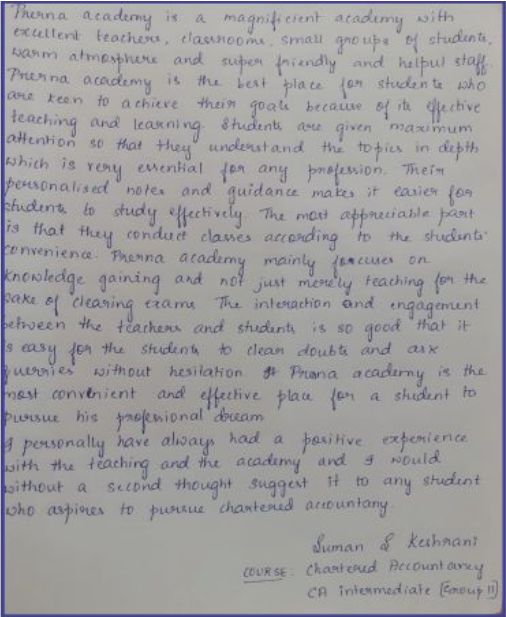 Prerna academy is a magnificient academy with
excellent teachers, classrooms, small groups of students,
warm atmosphere and super friendly and helpful staff.
Prerna academy is the best place for students who
are keen to achieve their goals because of its effective
teaching and learning. Students are given maximum
attention so that they understand the topics in depth
which is very essential for any profession. Their
personalised notes and guidance makes it easier for
students to study effectively. The most appreciable part
is that they conduct classes according to the students'
convenience. Prerna academy mainly forcuses on
knowledge gaining and not just merely teaching for the
sake of clearing exams. The interaction and engagement
between the teachers and students is so good that it
is easy for the students to clear doubts and ask
querries without hesitation Prerna academy is the
most convenient and effective place for a student to
pursue his professional dream
I personally have always had a positive experience
with the teaching and the academy and I would
without a second thought suggest it to any student
who aspires to pursue chartered accountany.
Suman S Keshrani
COURSE: Chartered Accountancy
CA intermediate (Group II)